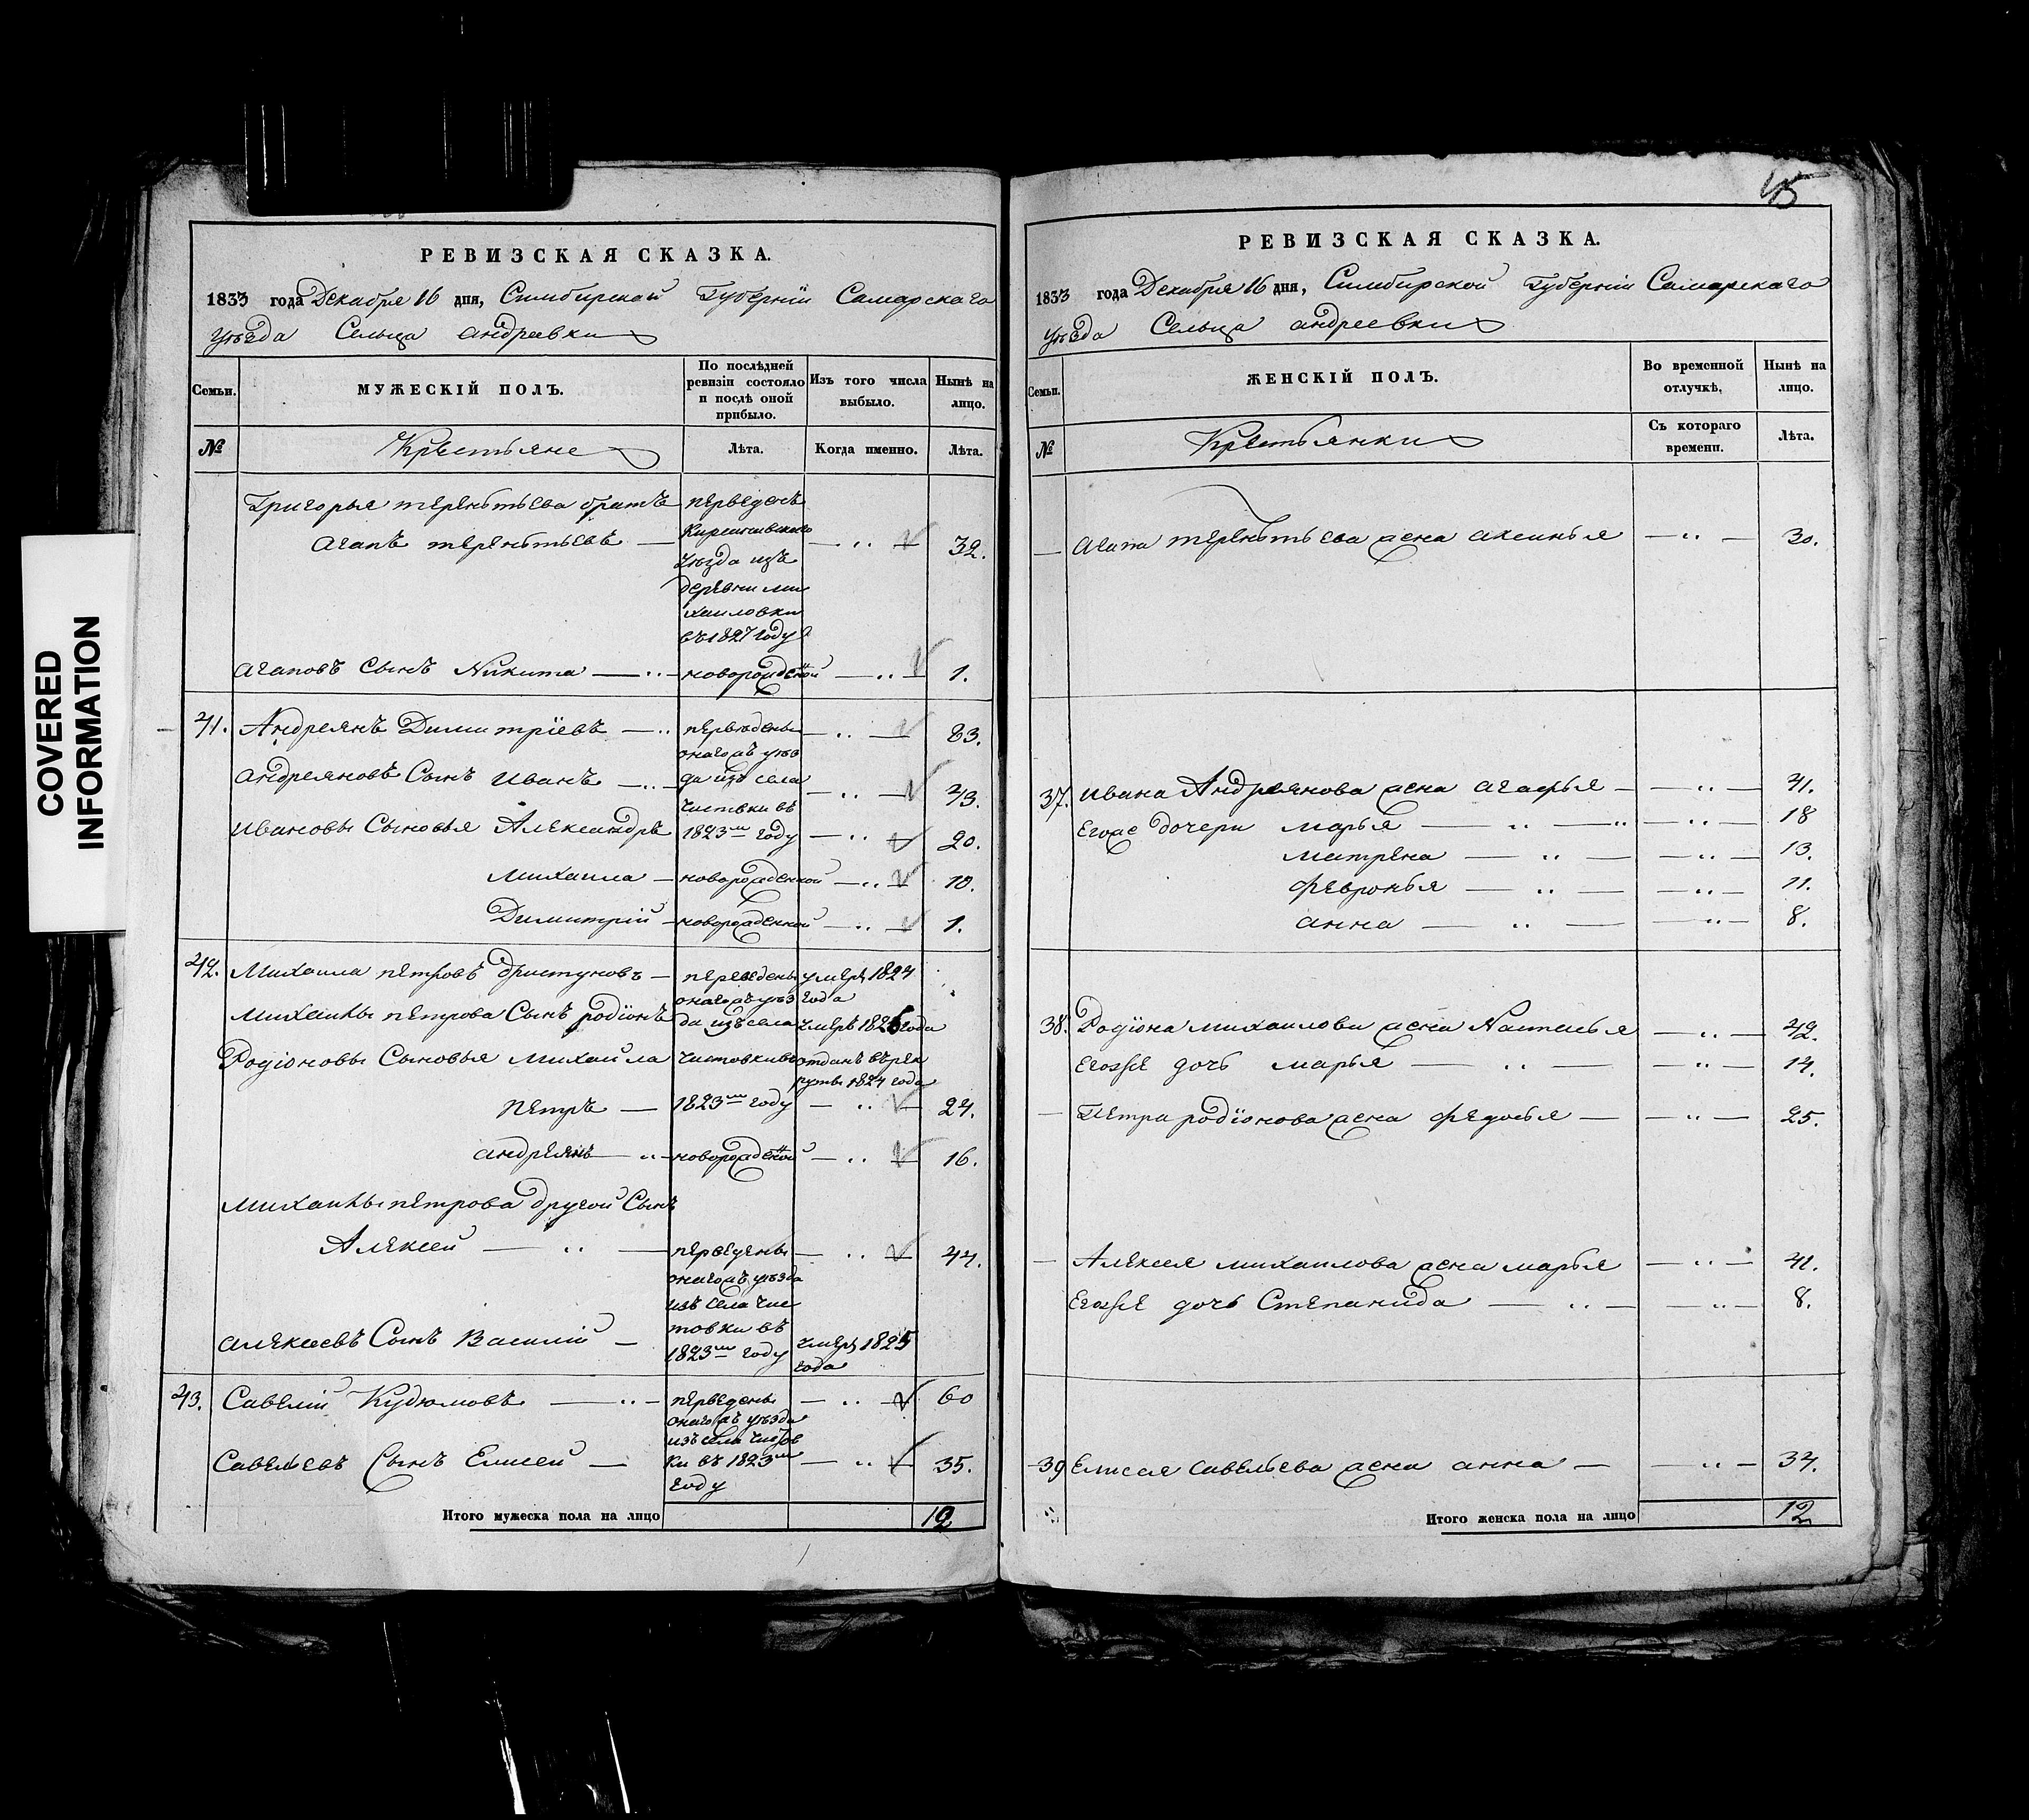 COVERED
INFORMATION
45
РЕВИЗСКАЯ СКАЗКА.
1833 года Декабря 16 дня, Симбирской Губерніи Самарскаго
уѣзда Сельца андреевки
Семьи.
МУЖЕСКІЙ ПОЛЪ.
По послѣдней
ревизіи состояло
и послѣ оной
прибыло.
Изъ того числа
выбыло.
Нынѣ на
лицо.
№
Крестьяне
Лѣта.
Когда именно.
Лѣта.
Григорья терентьева братъ
агапъ терентьевъ
переведенъ
уѣзда изъ
деревни ми
хаиловки
въ 1827 году
32.
агаповъ сынъ Никита новорожденой 1.
41. Андреянъ Димитріевъ переведены 83.
онагожъ уѣз
андреяновъ Сынъ иванъ да изъ села 43.
чистовки въ
ивановы Сыновья Александръ 1823м году 20.
михаила новорожденной 10.
Димитрій новорожденной 1.
42. Михаила петровъ переведены умеръ 1824
онагожъ уѣз года
михаилы петрова Сынъ родіонъ да изъ села умеръ 1826 года
Родіоновы Сыновья михайла чистовки въ отданъ въ рек
руты 1824 года
петръ 1823м году 24.
андреянъ новорожденой 16.
михаилы петрова другой Сынъ
Алексей переведены 44.
онагожъ уѣзда
изъ села чис
товки въ
алексеевъ Сынъ Василій 1823м году умеръ 1825
года
43. Савелій Кудюмовъ переведены 60
онагожъ уѣзда
изъ села чистов
Савельевъ Сынъ Елисей ки въ 1823м 35.
году
Итого мужеска пола на лицо 12
РЕВИЗСКАЯ СКАЗКА.
1833 года Декабря 16 дня, Симбирской Губерніи Самарскаго
уѣзда Сельца андреевки
Семьи.
ЖЕНСКІЙ ПОЛЪ.
Во временной
отлучкѣ,
Нынѣ на
лицо.
№
Крестьянки
Съ котораго
времени.
Лѣта.
агапа терентьева жена аксинья 30.
37. ивана Андреянова жена агафья 41.
Егоже дочери марья 18
матрена 13.
февронья 11.
анна 8.
38. Родіона михаилова жена Настасья 42.
Егожъ дочь марья 14.
Петра родіонова жена федосья 25.
Алексея михаилова жена марья 41.
Егожъ дочь Степанида 8.
39 Елисея савельева жена анна 34.
Итого женска пола на лицо 12